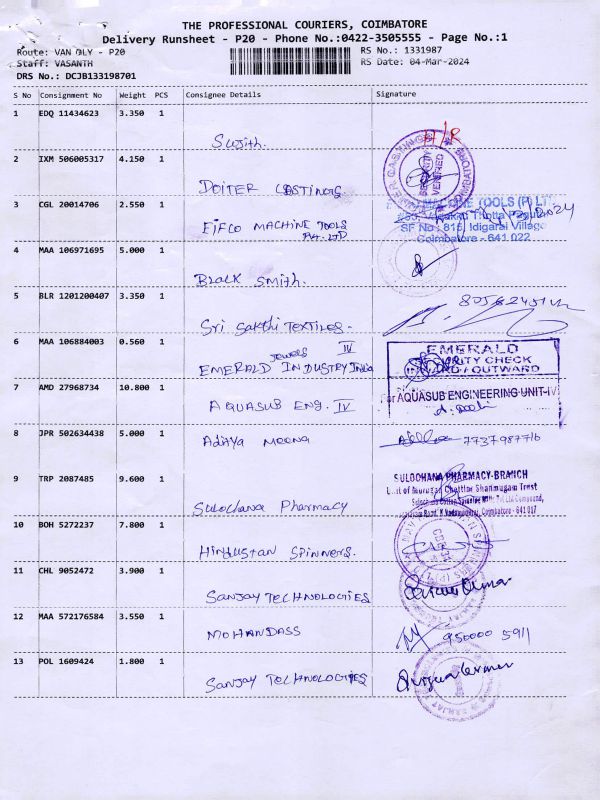 THE PROFESSIONAL COURIERS, COIMBATORE
Delivery Runsheet - P20 - Phone No.:0422-3505555 - Page No.:1
Route: VAN GLY - P20
RS No.: 1331987
Staff: VASANTH
RS Date: 04-Mar-2024
DRS No.: DCJB133198701
S No Consignment No Weight PCS Consignee Details Signature
1 EDQ 11434623 3.350 1
Sujith.
2 IXM 506005317 4.150 1
DOITER CASTINGS
3 CGL 20014706 2.550 1
EIFCO MACHINE TOOLS
PVT. LTD
MACHINE TOOLS (P) LTD
SF No : 815, Idigarai Village
Coimbatore - 641 022
4 MAA 106971695 5.000 1
Black Smith.
5 BLR 1201200407 3.350 1
Sri Sakthi Textiles -
IV
6 MAA 106884003 0.560 1
Jewels
EMERALD INDUSTRY India
EMERALD
SECURITY CHECK
INWARD / OUTWARD
7 AMD 27968734 10.800 1
AQUASUB ENG. IV
For AQUASUB ENGINEERING-UNIT-IV
8 JPR 502634438 5.000 1
Aditya Meena
7737987716
9 TRP 2087485 9.600 1
Sulochana Pharmacy
SULOCHANA PHARMACY-BRANCH
Unit of Murugan Chettiar Shanmugam Trest
10 BOH 5272237 7.800 1
Hindustan Spinners.
11 CHL 9052472 3.900 1
Sanjay Technologies
12 MAA 572176584 3.550 1
MOHANDASS
950000 5911
13 POL 1609424 1.800 1
Sanjay Technologies